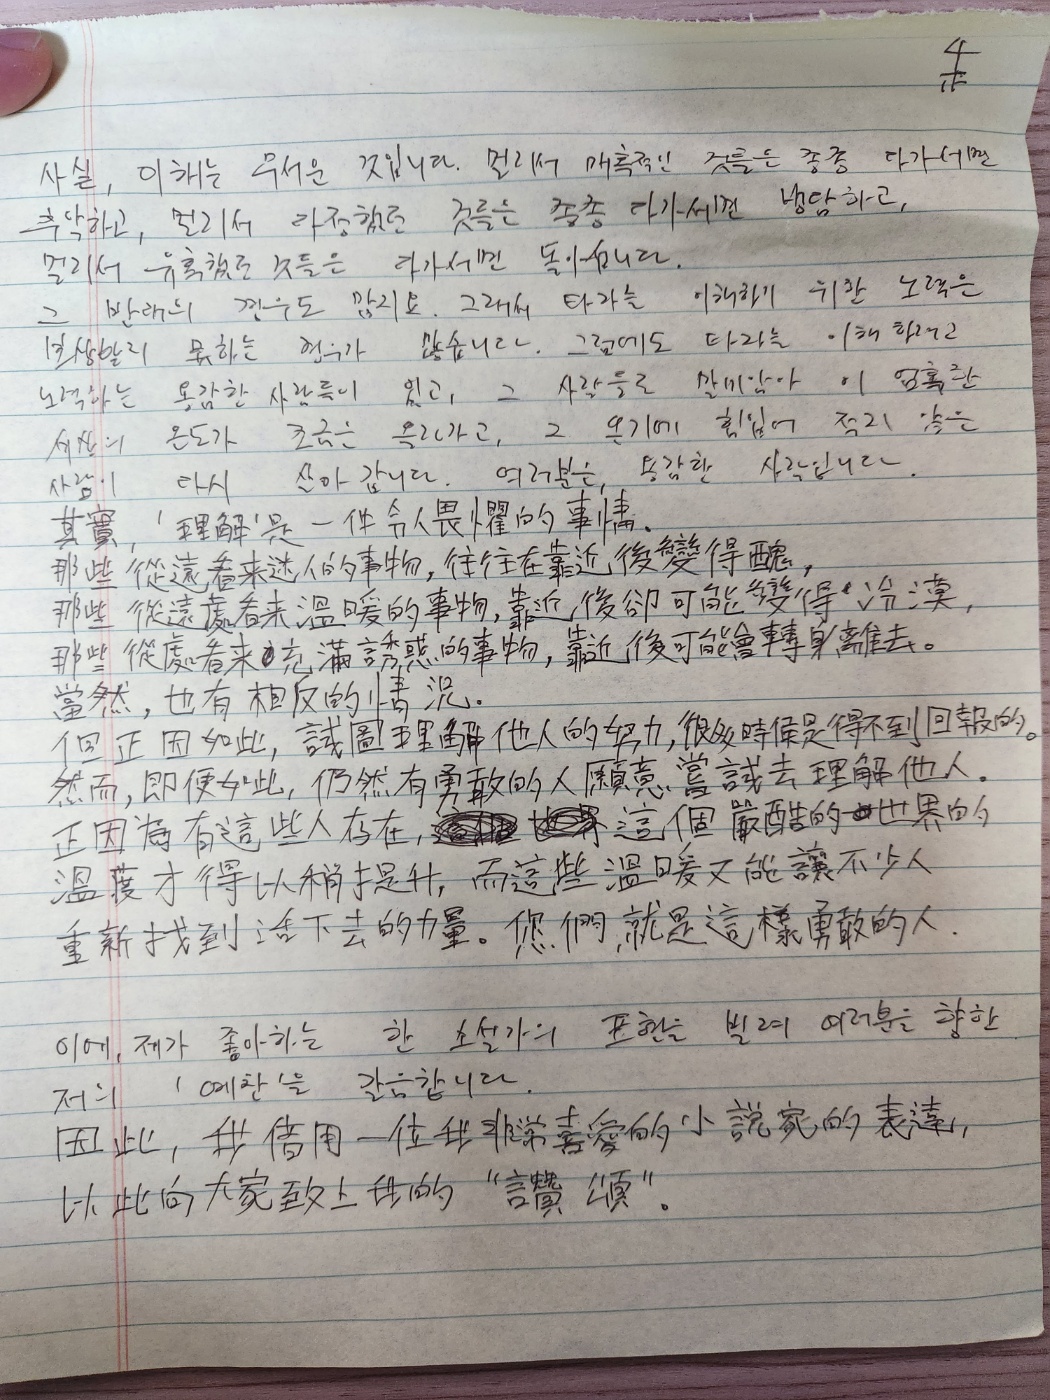 4
사실, 이해는 무서운 것입니다. 멀리서 매혹적인 것들은 종종 다가서면
추악하고, 멀리서 다정했던 것들은 종종 다가서면 냉담하고,
멀리서 유혹했던 것들은 다가서면 돌아섭니다.
그 반대의 경우도 많지요. 그래서 타자를 이해하기 위한 노력은
보상받지 못하는 경우가 많습니다. 그럼에도 타자를 이해하려고
노력하는 용감한 사람들이 있고, 그 사람들로 말미암아 이 혹한
세상의 온도가 조금은 올라가고, 그 온기에 힘입어 적지 않은
사람이 다시 살아 갑니다. 여러분은, 용감한 사람입니다.
其實,「理解」是一件令人畏懼的事情。
那些從遠看来迷人的事物, 往往在靠近後變得醜,
那些從遠處看来溫暖的事物, 靠近後卻可能變得冷漠,
那些從處看来充滿誘惑的事物, 靠近後可能會轉身離去。
當然, 也有相反的情況。
但正因如此, 試圖理解他人的努力, 很多時候是得不到回報的。
然而, 即便如此, 仍然有勇敢的人願意嘗試去理解他人.
正因為有這些人存在, 這個嚴酷的世界的
溫度才得以稍提升, 而這些溫暖又能讓不少人
重新找到活下去的力量。您們, 就是這樣勇敢的人.
이에, 제가 좋아하는 한 소설가의 표현을 빌려 여러분을 향한
저의 '예찬'을 갈음합니다.
因此, 我借用一位我非常喜愛的小說家的表達,
以此向大家致上我的 “讚頌”。